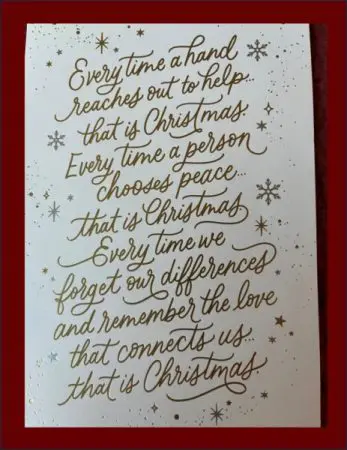 Every time a hand
reaches out to help...
that is Christmas.
Every time a person
chooses peace...
that is Christmas.
Every time we
forget our differences
and remember the love
that connects us...
that is Christmas.